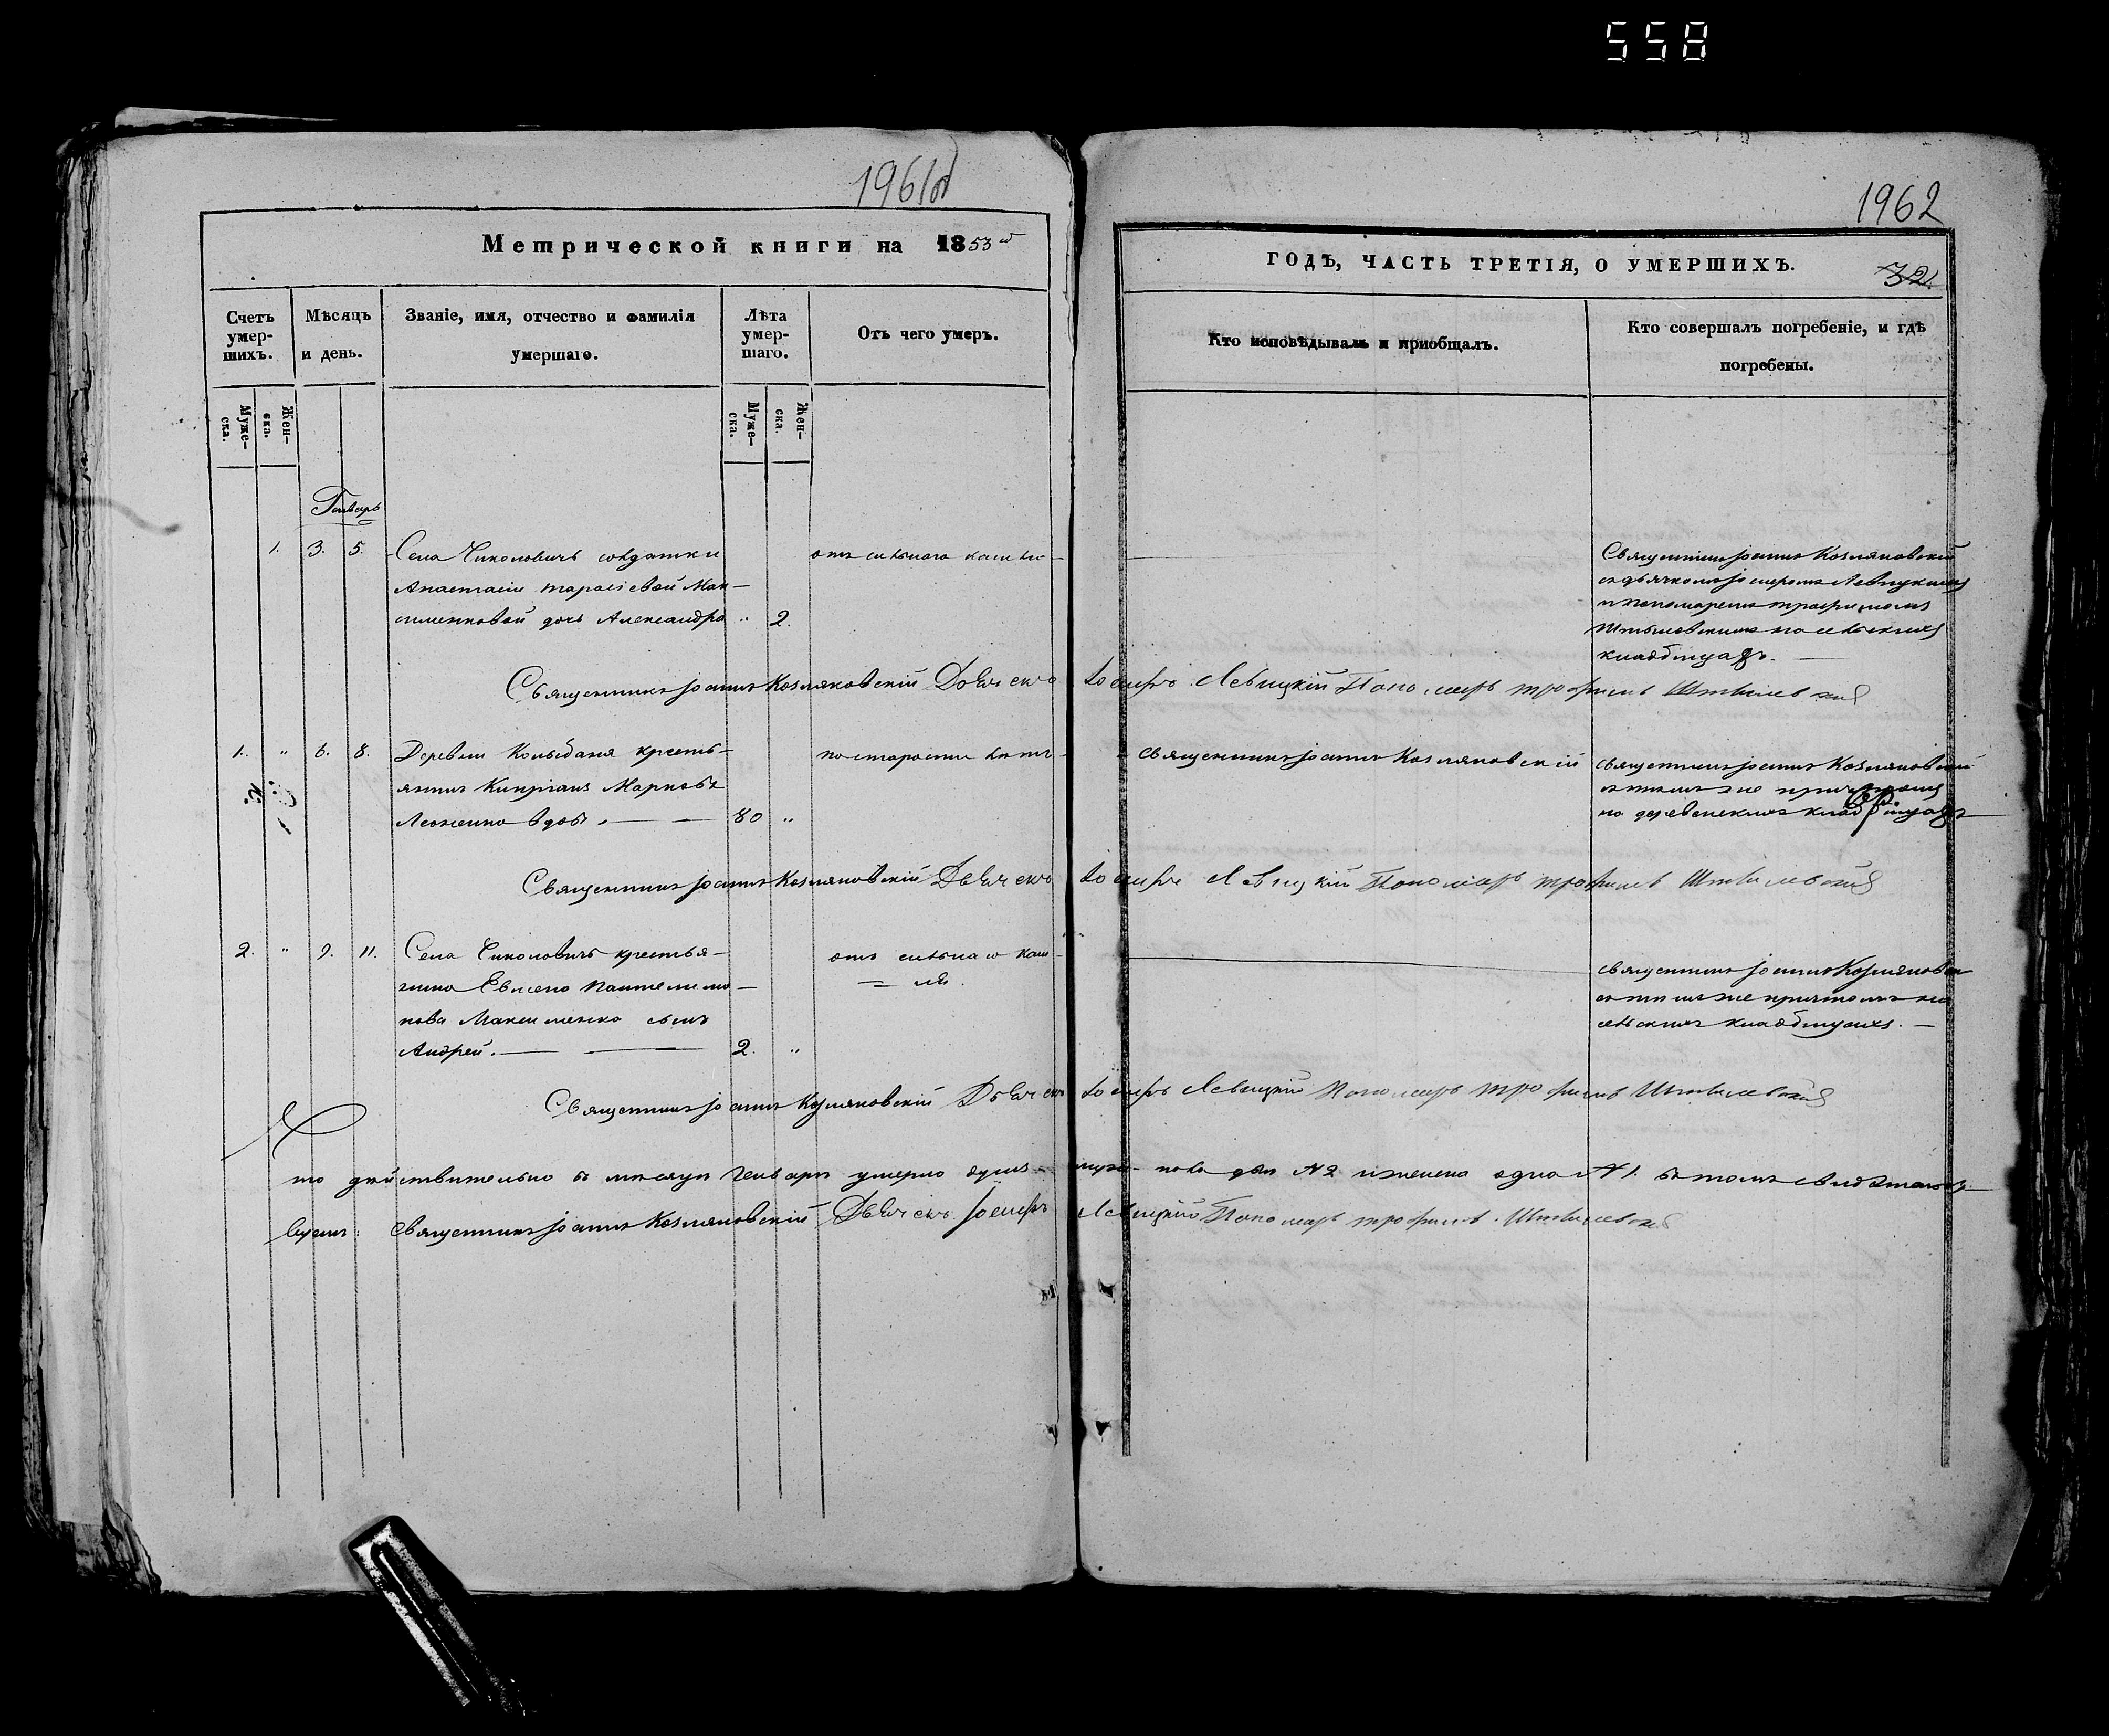 558
1961об
1962
Метрической книги на 1853й
ГОДЪ, ЧАСТЬ ТРЕТІЯ, О УМЕРШИХЪ.
32
Счетъ умер-шихъ.
Мѣсяцъ и день.
Званіе, имя, отчество и фамилія умершаго.
Лѣта умер-шаго.
Отъ чего умеръ.
Кто исповѣдывалъ и приобщалъ.
Кто совершалъ погребеніе, и гдѣ погребены.
Муже-ска.
Жен-ска.
Муже-ска.
Жен-ска.
Генварь
1. 3. 5. Села
Анастасіи Тарасіевой Мак-
сименковой дочь Александра " 2.
отъ сильнаго кашлю
Священникъ Іоаннъ Козляковскій
съ дьячкомъ Іосифомъ Левицкимъ
и пономаремъ Трофимомъ
на сельскихъ
кладбищахъ.
Священникъ Іоаннъ Козляковскій Дьячекъ Іосифъ Левицкій Пономарь Трофимъ
1. " 6. 8. Деревни кресть-
янинъ Кипріанъ Марковъ
вдовъ. 80 "
по старости лѣтъ
Священникъ Іоаннъ Козляковскій
Священникъ Іоаннъ Козляковскій
съ тѣмъ же причтомъ
на деревенскихъ кладбищахъ
Священникъ Іоаннъ Козляковскій Дьячекъ Іосифъ Левицкій Пономарь Трофимъ
2. " 9. 11. Села крестья-
нина Пантелимо-
нова Максименко сынъ
Андрей. 2. "
отъ сильнаго каш-
ля.
Священникъ Іоаннъ Козляковскій
съ тѣмъ же причтомъ на
сельскихъ кладбищахъ.
Священникъ Іоаннъ Козляковскій Дьячекъ Іосифъ Левицкій Пономарь Трофимъ
что дѣйствительно въ мѣсяцѣ Генварѣ умерло душъ муже- пола два № 2 и женска одна № 1. въ томъ свидѣтель-
ствуемъ: Священникъ Іоаннъ Козляковскій Дьячекъ Іосифъ Левицкій Пономарь Трофимъ